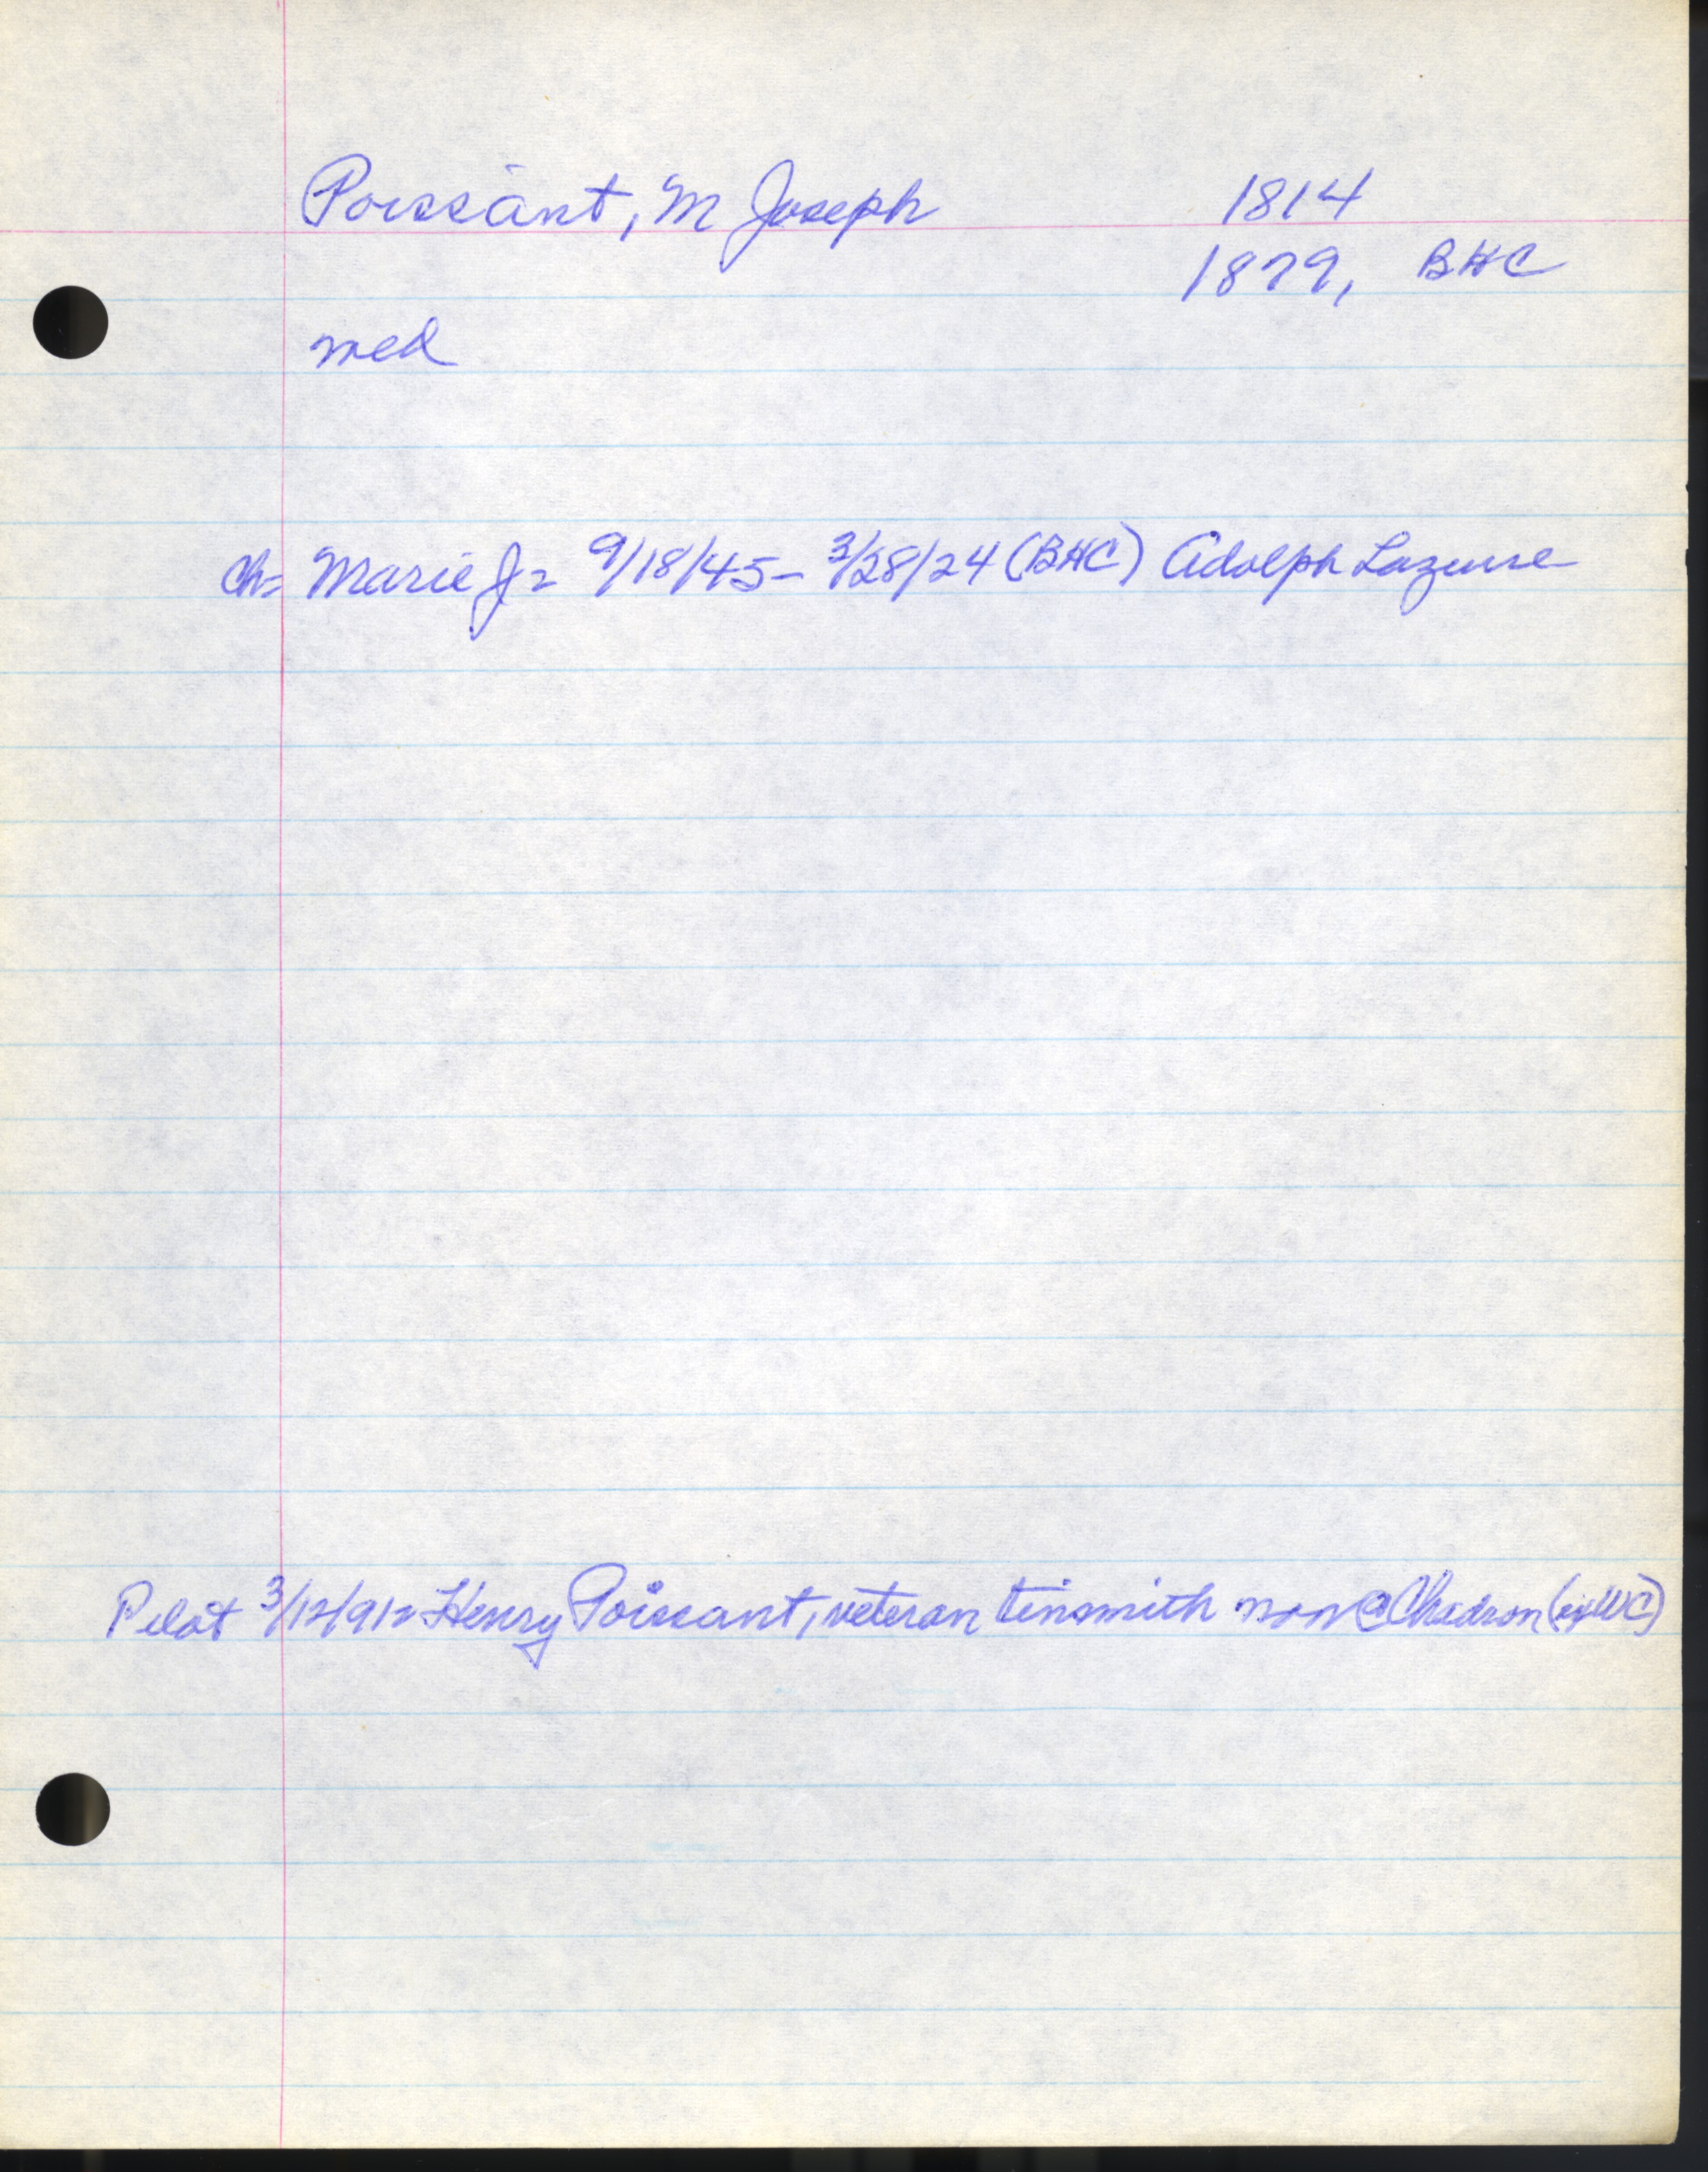 Poissant, M Joseph 1814
1879, BHC
med
ch= Marie J= 9/18/45- 3/28/24 (BHC) Adolph Lazure
Pilot 3/12/912 Henry Poissant, veteran tinsmith now @ Chadron (ex WC)